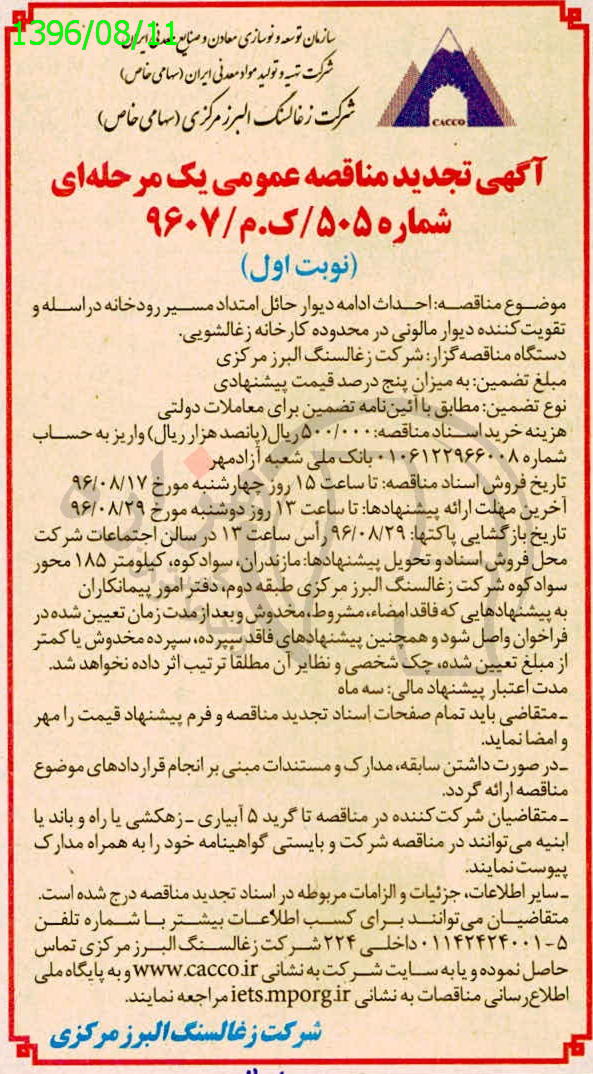 1396/08/11
سازمان توسعه و نوسازی معادن و صنایع معدنی ایران
شرکت تهیه و تولید مواد معدنی ایران (سهامی خاص)
شرکت زغالسنگ البرز مرکزی (سهامی خاص)
CACCO
آگهی تجدید مناقصه عمومی یک مرحله‌ای
شماره ۵۰۵/ک.م/۹۶۰۷
(نوبت اول)
موضوع مناقصه: احداث ادامه دیوار حائل امتداد مسیر رودخانه دراسله و
تقویت کننده دیوار مالونی در محدوده کارخانه زغالشویی.
دستگاه مناقصه‌گزار: شرکت زغالسنگ البرز مرکزی
مبلغ تضمین: به میزان پنج درصد قیمت پیشنهادی
نوع تضمین: مطابق با آئین‌نامه تضمین برای معاملات دولتی
هزینه خرید اسناد مناقصه: ۵۰۰/۰۰۰ ریال (پانصد هزار ریال) واریز به حساب
شماره ۰۱۰۶۱۲۲۹۶۶۰۰۸ بانک ملی شعبه آزادمهر
تاریخ فروش اسناد مناقصه: تا ساعت ۱۵ روز چهارشنبه مورخ ۹۶/۰۸/۱۷
آخرین مهلت ارائه پیشنهادها: تا ساعت ۱۳ روز دوشنبه مورخ ۹۶/۰۸/۲۹
تاریخ بازگشایی پاکتها: ۹۶/۰۸/۲۹ رأس ساعت ۱۳ در سالن اجتماعات شرکت
محل فروش اسناد و تحویل پیشنهادها: مازندران، سوادکوه، کیلومتر ۱۸۵ محور
سوادکوه شرکت زغالسنگ البرز مرکزی طبقه دوم، دفتر امور پیمانکاران
به پیشنهادهایی که فاقد امضاء، مشروط، مخدوش و بعد از مدت زمان تعیین شده در
فراخوان واصل شود و همچنین پیشنهادهای فاقد سپرده، سپرده مخدوش یا کمتر
از مبلغ تعیین شده، چک شخصی و نظایر آن مطلقاً ترتیب اثر داده نخواهد شد.
مدت اعتبار پیشنهاد مالی: سه ماه
ـ متقاضی باید تمام صفحات اسناد تجدید مناقصه و فرم پیشنهاد قیمت را مهر
و امضا نماید.
ـ در صورت داشتن سابقه، مدارک و مستندات مبنی بر انجام قراردادهای موضوع
مناقصه ارائه گردد.
ـ متقاضیان شرکت کننده در مناقصه تا گرید ۵ آبیاری ـ زهکشی یا راه و باند یا
ابنیه می‌توانند در مناقصه شرکت و بایستی گواهینامه خود را به همراه مدارک
پیوست نمایند.
ـ سایر اطلاعات، جزئیات و الزامات مربوطه در اسناد تجدید مناقصه درج شده است.
متقاضیان می‌توانند برای کسب اطلاعات بیشتر با شماره تلفن
۰۱۱۴۲۴۲۴۰۰۱-۵ داخلی ۲۲۴ شرکت زغالسنگ البرز مرکزی تماس
حاصل نموده و یا به سایت شرکت به نشانی www.cacco.ir و به پایگاه ملی
اطلاع‌رسانی مناقصات به نشانی iets.mporg.ir مراجعه نمایند.
شرکت زغالسنگ البرز مرکزی